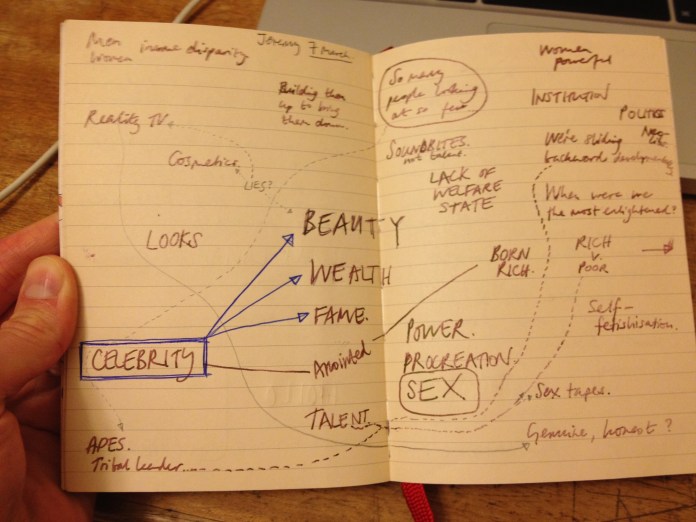 Men income disparity
Women
Jeremy 7 March.
Building them
up to bring
them down.
Reality TV.
Cosmetics.
LIES?
BEAUTY
LOOKS
WEALTH
FAME.
CELEBRITY
Anointed
TALENT
APES.
Tribal leader...
So many
people looking
at so few
Women
powerful
INSTITUTION
POLITICS
Neo
SOUNDBITES.
not talent.
We're sliding
backward developmentally
LACK OF
WELFARE
STATE
When were we
the most enlightened?
BORN
RICH.
RICH
V.
POOR
Self-
fetishisation.
POWER.
PROCREATION.
SEX
Sex tapes.
Genuine, honest?